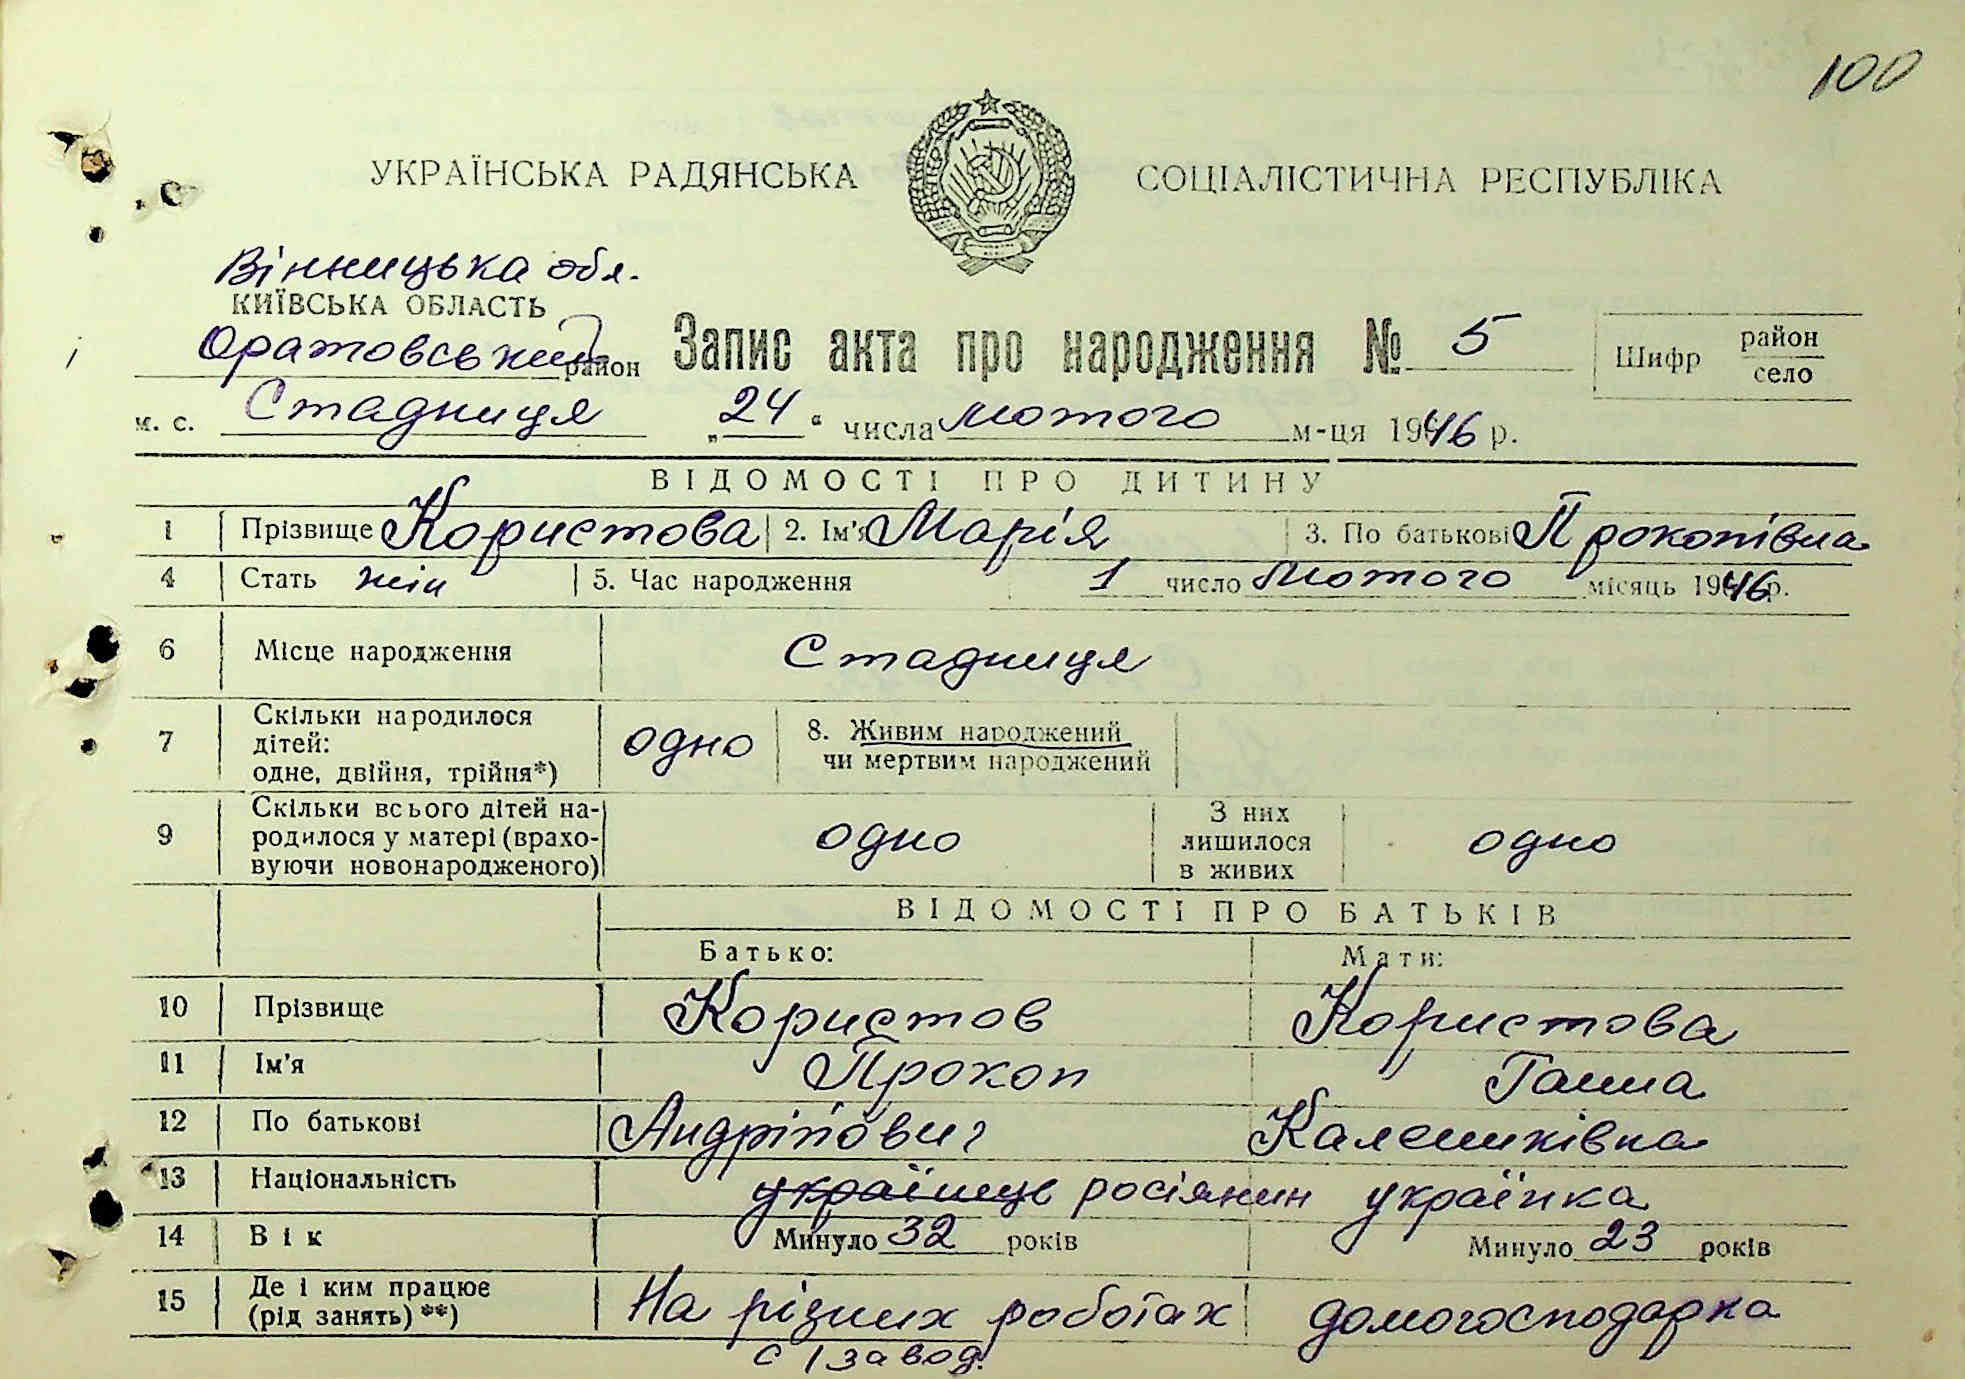 100
УКРАЇНСЬКА РАДЯНСЬКА СОЦІАЛІСТИЧНА РЕСПУБЛІКА
Вінницька обл.
КИЇВСЬКА ОБЛАСТЬ
Оратовський район Запис акта про народження № 5 Шифр район село
м. с. Стадниця „24“ числа лютого м-ця 1946 р.
ВІДОМОСТІ ПРО ДИТИНУ
1 Прізвище Користова 2. Ім'я Марія 3. По батькові Прокопівна
4 Стать жін 5. Час народження 1 число лютого місяць 1946 р.
6 Місце народження Стадниця
7 Скільки народилося дітей: одне, двійня, трійня*) одно 8. Живим народжений чи мертвим народжений
9 Скільки всього дітей на-родилося у матері (врахо-вуючи новонародженого) одно З них лишилося в живих одно
ВІДОМОСТІ ПРО БАТЬКІВ
Батько: Мати:
10 Прізвище Користов Користова
11 Ім'я Прокоп Ганна
12 По батькові Андрійович Калениківна
13 Національність українець росіянин українка
14 Вік Минуло 32 років Минуло 23 років
15 Де і ким працює (рід занять) **) На різних роботах домогосподарка
с / завод.